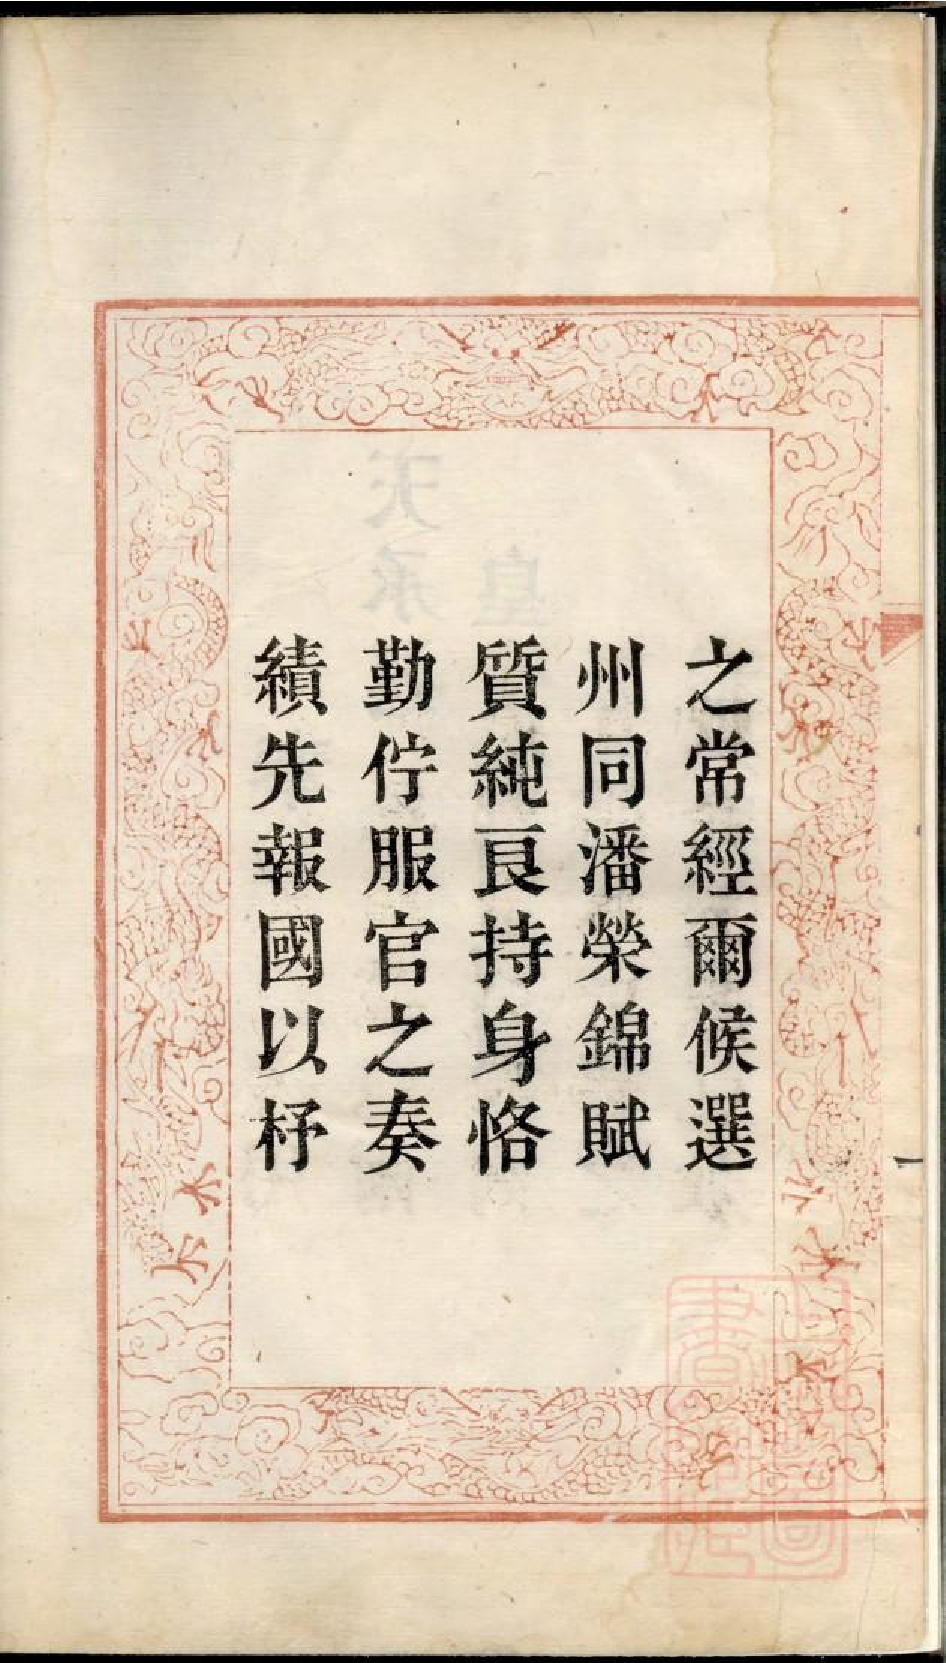 之常經爾候選
州同潘榮錦賦
質純良持身恪
勤佇服官之奏
績先報國以杼
一